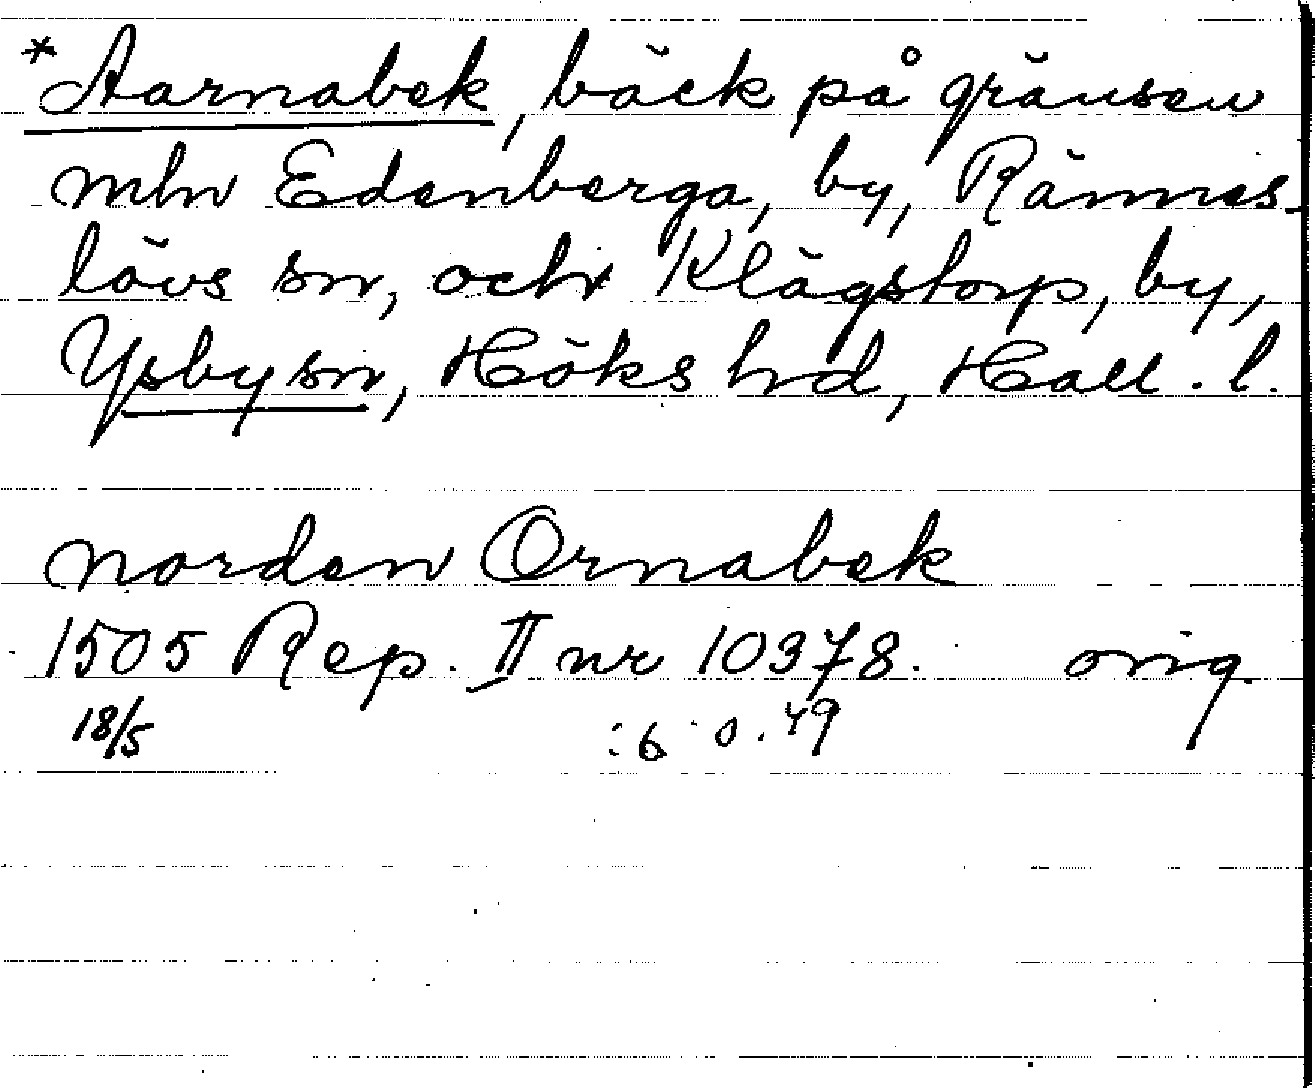 *Aarnabek, bäck på gränsen
mln Edenberga, by, Rännes-
lövs sn, och Klägstorp, by,
Ysby sn, Höks hd, Hall. l.
norden Ornabek
1505 Rep. II nr 10378. orig.
18/5